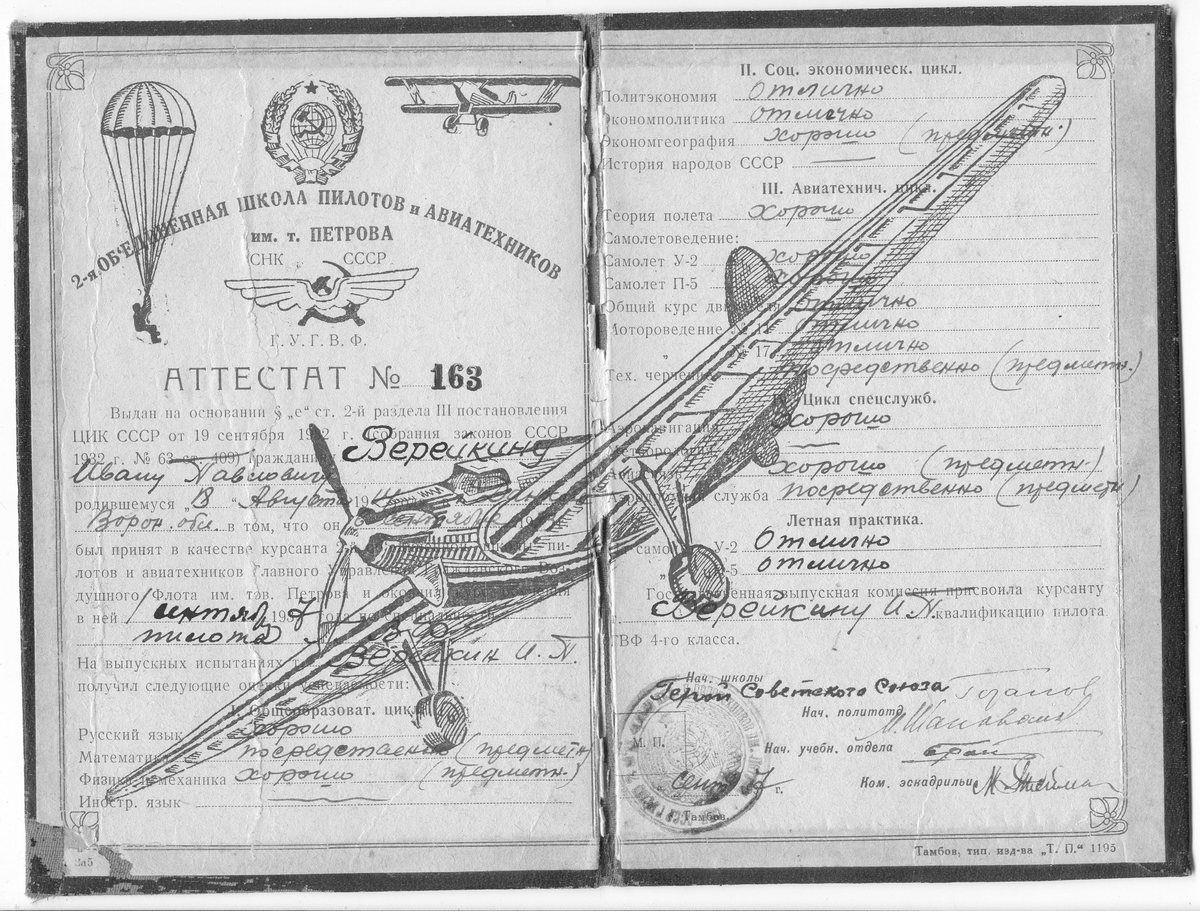 2-я ОБ'ЕДИНЕННАЯ ШКОЛА ПИЛОТОВ и АВИАТЕХНИКОВ
им. т. ПЕТРОВА
СНК СССР
Г. У. Г. В. Ф.
АТТЕСТАТ № 163
Выдан на основании § „е" ст. 2-й раздела III постановления
ЦИК СССР от 19 сентября 1932 г. (собрания законов СССР
1932 г. № 63 ст. 409) гражданину Верейкину
Ивану Павловичу
родившемуся „18 " Августа 19
Ворон. обл. в том, что он сентября 19
был принят в качестве курсанта 2-й школы пи-
лотов и авиатехников Главного Управления Воз-
душного Флота им. тов. Петрова и окончил курс
в ней 1 сентяб 7 193 года по
пилота
На выпускных испытаниях т. Верейкин И. П.
получил следующие оценки успеваемости:
I. Общеобразоват. цикл.
Русский язык хорошо
Математика посредственно (предметн
Физика и механика хорошо (предметн.)
Иностр. язык
За5
II. Соц. экономическ. цикл.
Политэкономия Отлично
Экономполитика отлично
Экономгеография хорошо (предметн.)
История народов СССР —
III. Авиатехнич. цикл.
Теория полета хорошо
Самолетоведение:
Самолет У-2 хорошо
Самолет П-5 хорошо
Общий курс двигателя отлично
Мотороведение № 11 отлично
„ № 17 отлично
Тех. черчение посредственно (предметн.)
IV. Цикл спецслужб.
Аэронавигация хорошо
Метеорология —
хорошо (предметн.)
служба посредственно (предметн)
Летная практика.
самолет У-2 Отлично
-5 отлично
Государственная выпускная комиссия присвоила курсанту
Верейкину И. П. квалификацию пилота
ГВФ 4-го класса.
Нач. школы
Герой Советского Союза
Нач. политотд.
М. П.
Нач. учебн. отдела
сент 7 г.
Ком. эскадрильи
Тамбов.
Тамбов, тип. изд-ва „Т. П." 1195